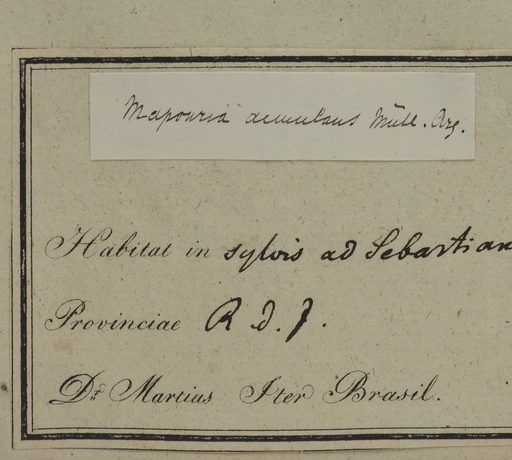 Mapouria aemulans Müll. Arg.
Habitat in sylvis ad Sebastian
Provinciae R. d. J.
Dr. Martius Iter Brasil.